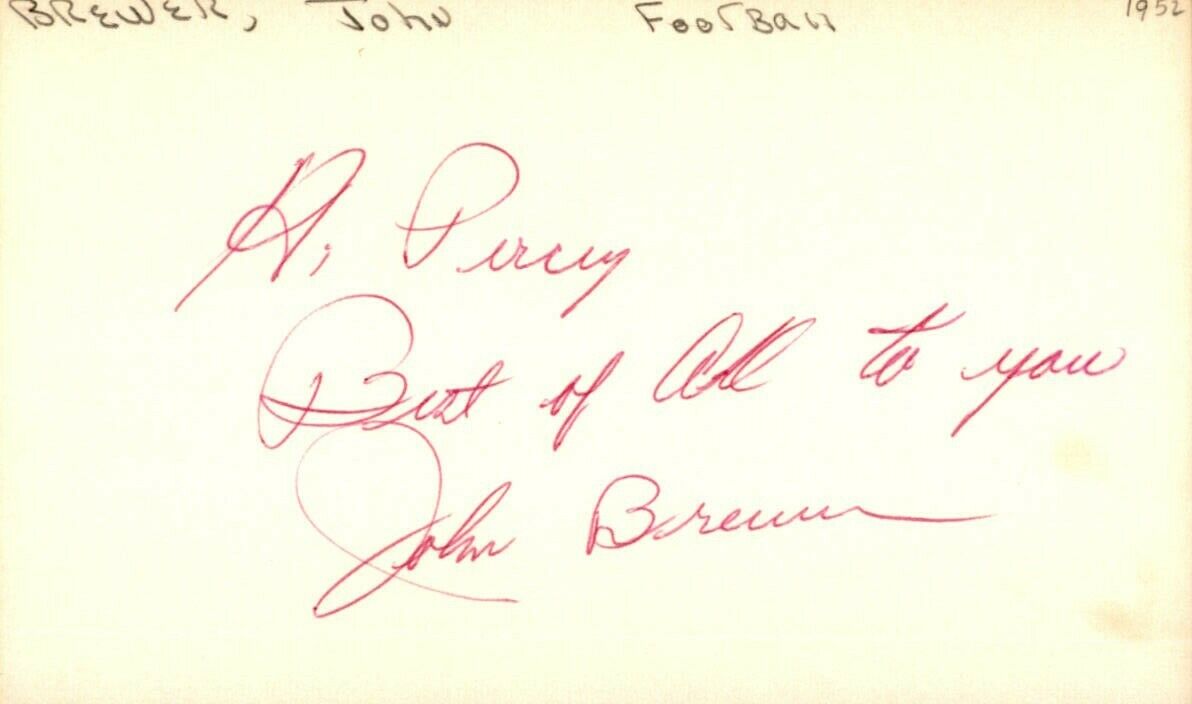 BREWER, John Football 1952
Hi, Percy
Best of All to you
John Brewer